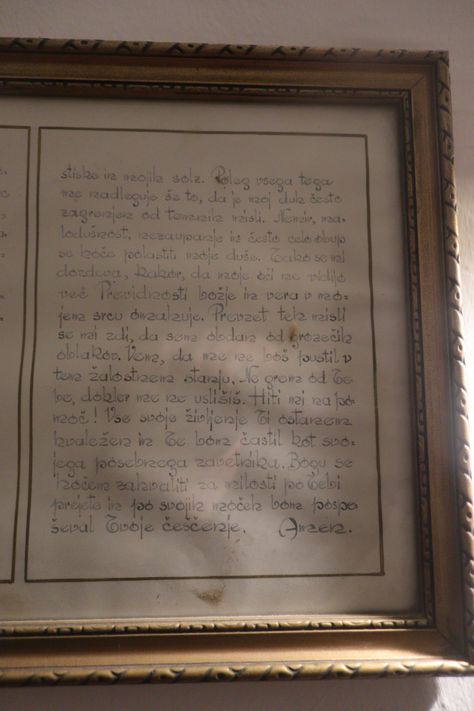 stiske in mojih solz. Poleg vsega tega
me nadleguje še to, da je moj duh često
zagrnjen od temnih misli. Nemir, ma-
lodušnost, nezaupanje in često celo obup
se hoče polastiti moje duše. Tako se mi
dozdeva, kakor, da moje oči ne vidijo
več Previdnosti božje in vera v mo-
jem srcu omahuje. Prevzet teh misli
se mi zdi, da sem obdan od grozečih
oblakov. Vem, da me ne boš pustil v
tem žalostnem stanju. Ne grem od Te-
be, dokler me ne uslišiš. Hiti mi na po-
moč! Vse svoje življenje Ti ostanem
hvaležen in Te bom častil kot svo-
jega posebnega zavetnika. Bogu se
hočem zahvaliti za milosti po Tebi
prejete in po svojih močeh bom pospe
ševal Tvoje češčenje. Amen.